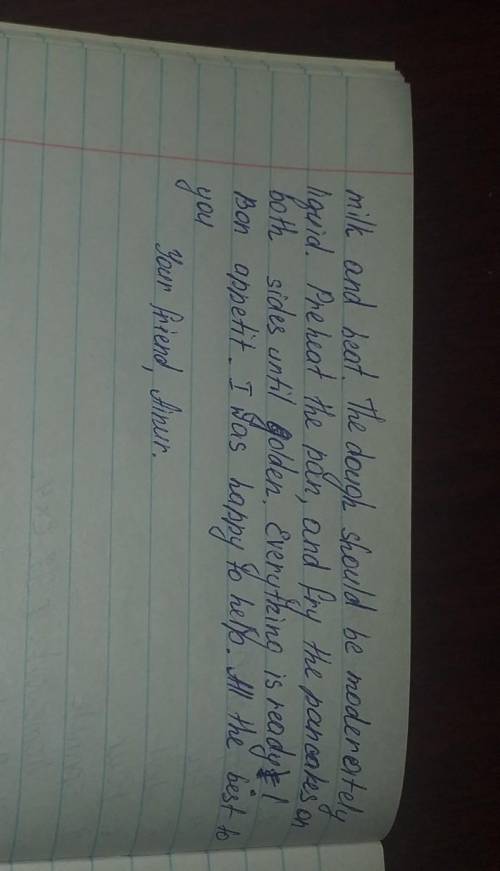 milk and heat. The dough should be moderately
liquid. Preheat the pan, and fry the pancakes on
both sides until golden. Everything is ready!
Bon appetit. I was happy to help. All the best to
you
Your friend, Ainur.